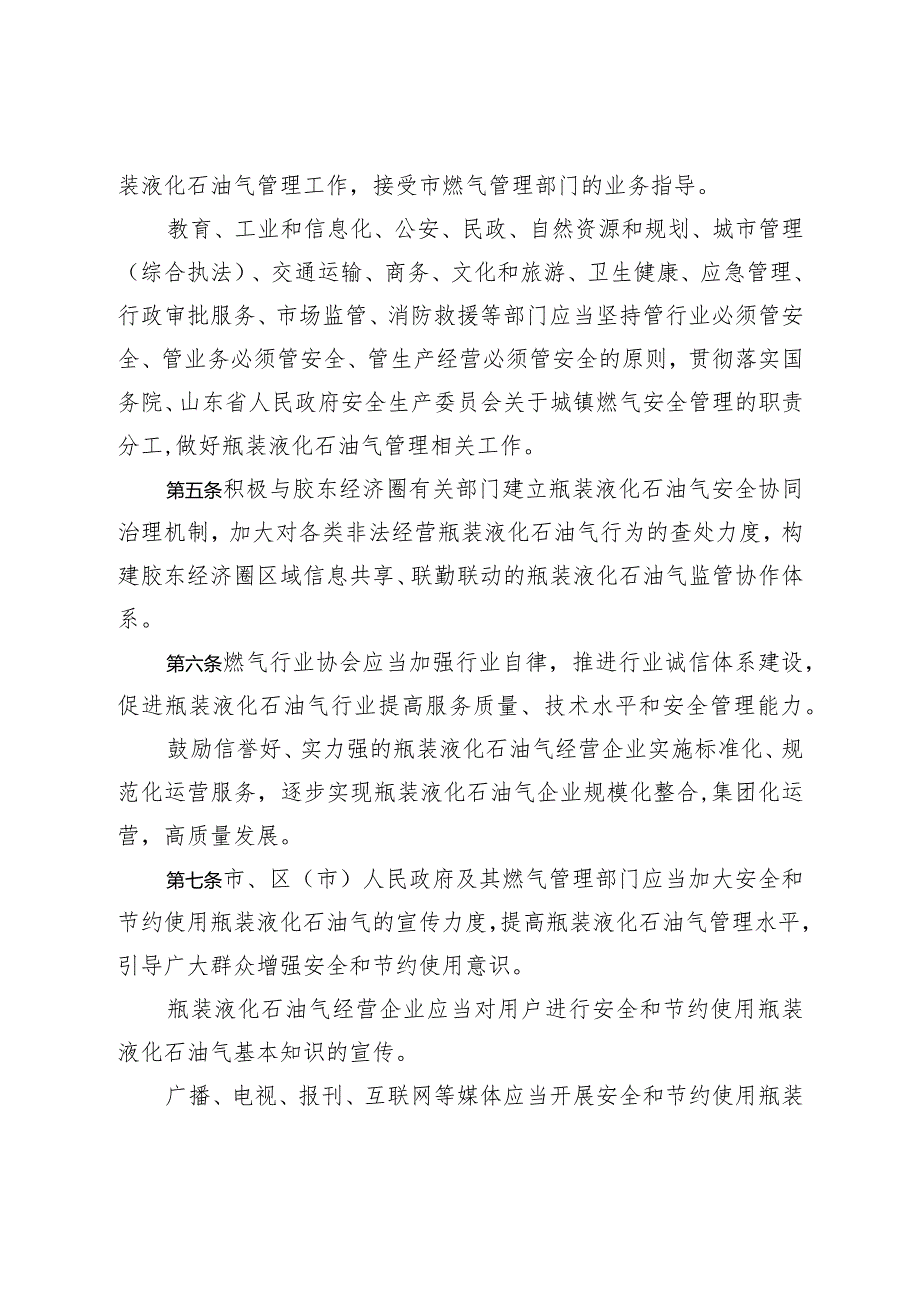 装液化石油气管理工作，接受市燃气管理部门的业务指导。
教育、工业和信息化、公安、民政、自然资源和规划、城市管理
（综合执法）、交通运输、商务、文化和旅游、卫生健康、应急管理、
行政审批服务、市场监管、消防救援等部门应当坚持管行业必须管安
全、管业务必须管安全、管生产经营必须管安全的原则，贯彻落实国
务院、山东省人民政府安全生产委员会关于城镇燃气安全管理的职责
分工,做好瓶装液化石油气管理相关工作。
第五条积极与胶东经济圈有关部门建立瓶装液化石油气安全协同
治理机制，加大对各类非法经营瓶装液化石油气行为的查处力度，构
建胶东经济圈区域信息共享、联勤联动的瓶装液化石油气监管协作体
系。
第六条燃气行业协会应当加强行业自律，推进行业诚信体系建设，
促进瓶装液化石油气行业提高服务质量、技术水平和安全管理能力。
鼓励信誉好、实力强的瓶装液化石油气经营企业实施标准化、规
范化运营服务，逐步实现瓶装液化石油气企业规模化整合,集团化运
营，高质量发展。
第七条市、区（市）人民政府及其燃气管理部门应当加大安全和
节约使用瓶装液化石油气的宣传力度，提高瓶装液化石油气管理水平，
引导广大群众增强安全和节约使用意识。
瓶装液化石油气经营企业应当对用户进行安全和节约使用瓶装
液化石油气基本知识的宣传。
广播、电视、报刊、互联网等媒体应当开展安全和节约使用瓶装